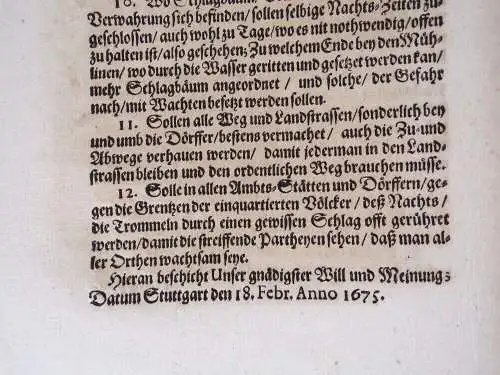 10. Wo Schlagbäum,
Verwahrung sich befinden/ sollen selbige Nachts-Zeiten zu-
geschlossen/ auch wohl zu Tage/ wo es nit nothwendig/ offen
zu halten ist/ also geschehen; Zu welchem Ende bey den Müh-
linen/ wo durch die Wasser geritten und gesetzet werden kan/
mehr Schlagbäum angeordnet / und solche/ der Gefahr
nach/ mit Wachten besetzt werden sollen.
11. Sollen alle Weg und Landstrassen/ sonderlich bey
und umb die Dörffer/ bestens vermachet/ auch die Zu-und
Abwege verhauen werden/ damit jederman in den Land-
strassen bleiben und den ordentlichen Weg brauchen müsse.
12. Solle in allen Ambts-Stätten und Dörffern/ ge-
gen die Grentzen der einquartierten Völcker/ deß Nachts/
die Trommeln durch einen gewissen Schlag offt gerühret
werden/ damit die streiffende Partheyen sehen/ daß man al-
ler Orthen wachtsam seye.
Hieran beschicht Unser gnädigster Will und Meinung;
Datum Stuttgart den 18. Febr. Anno 1675.